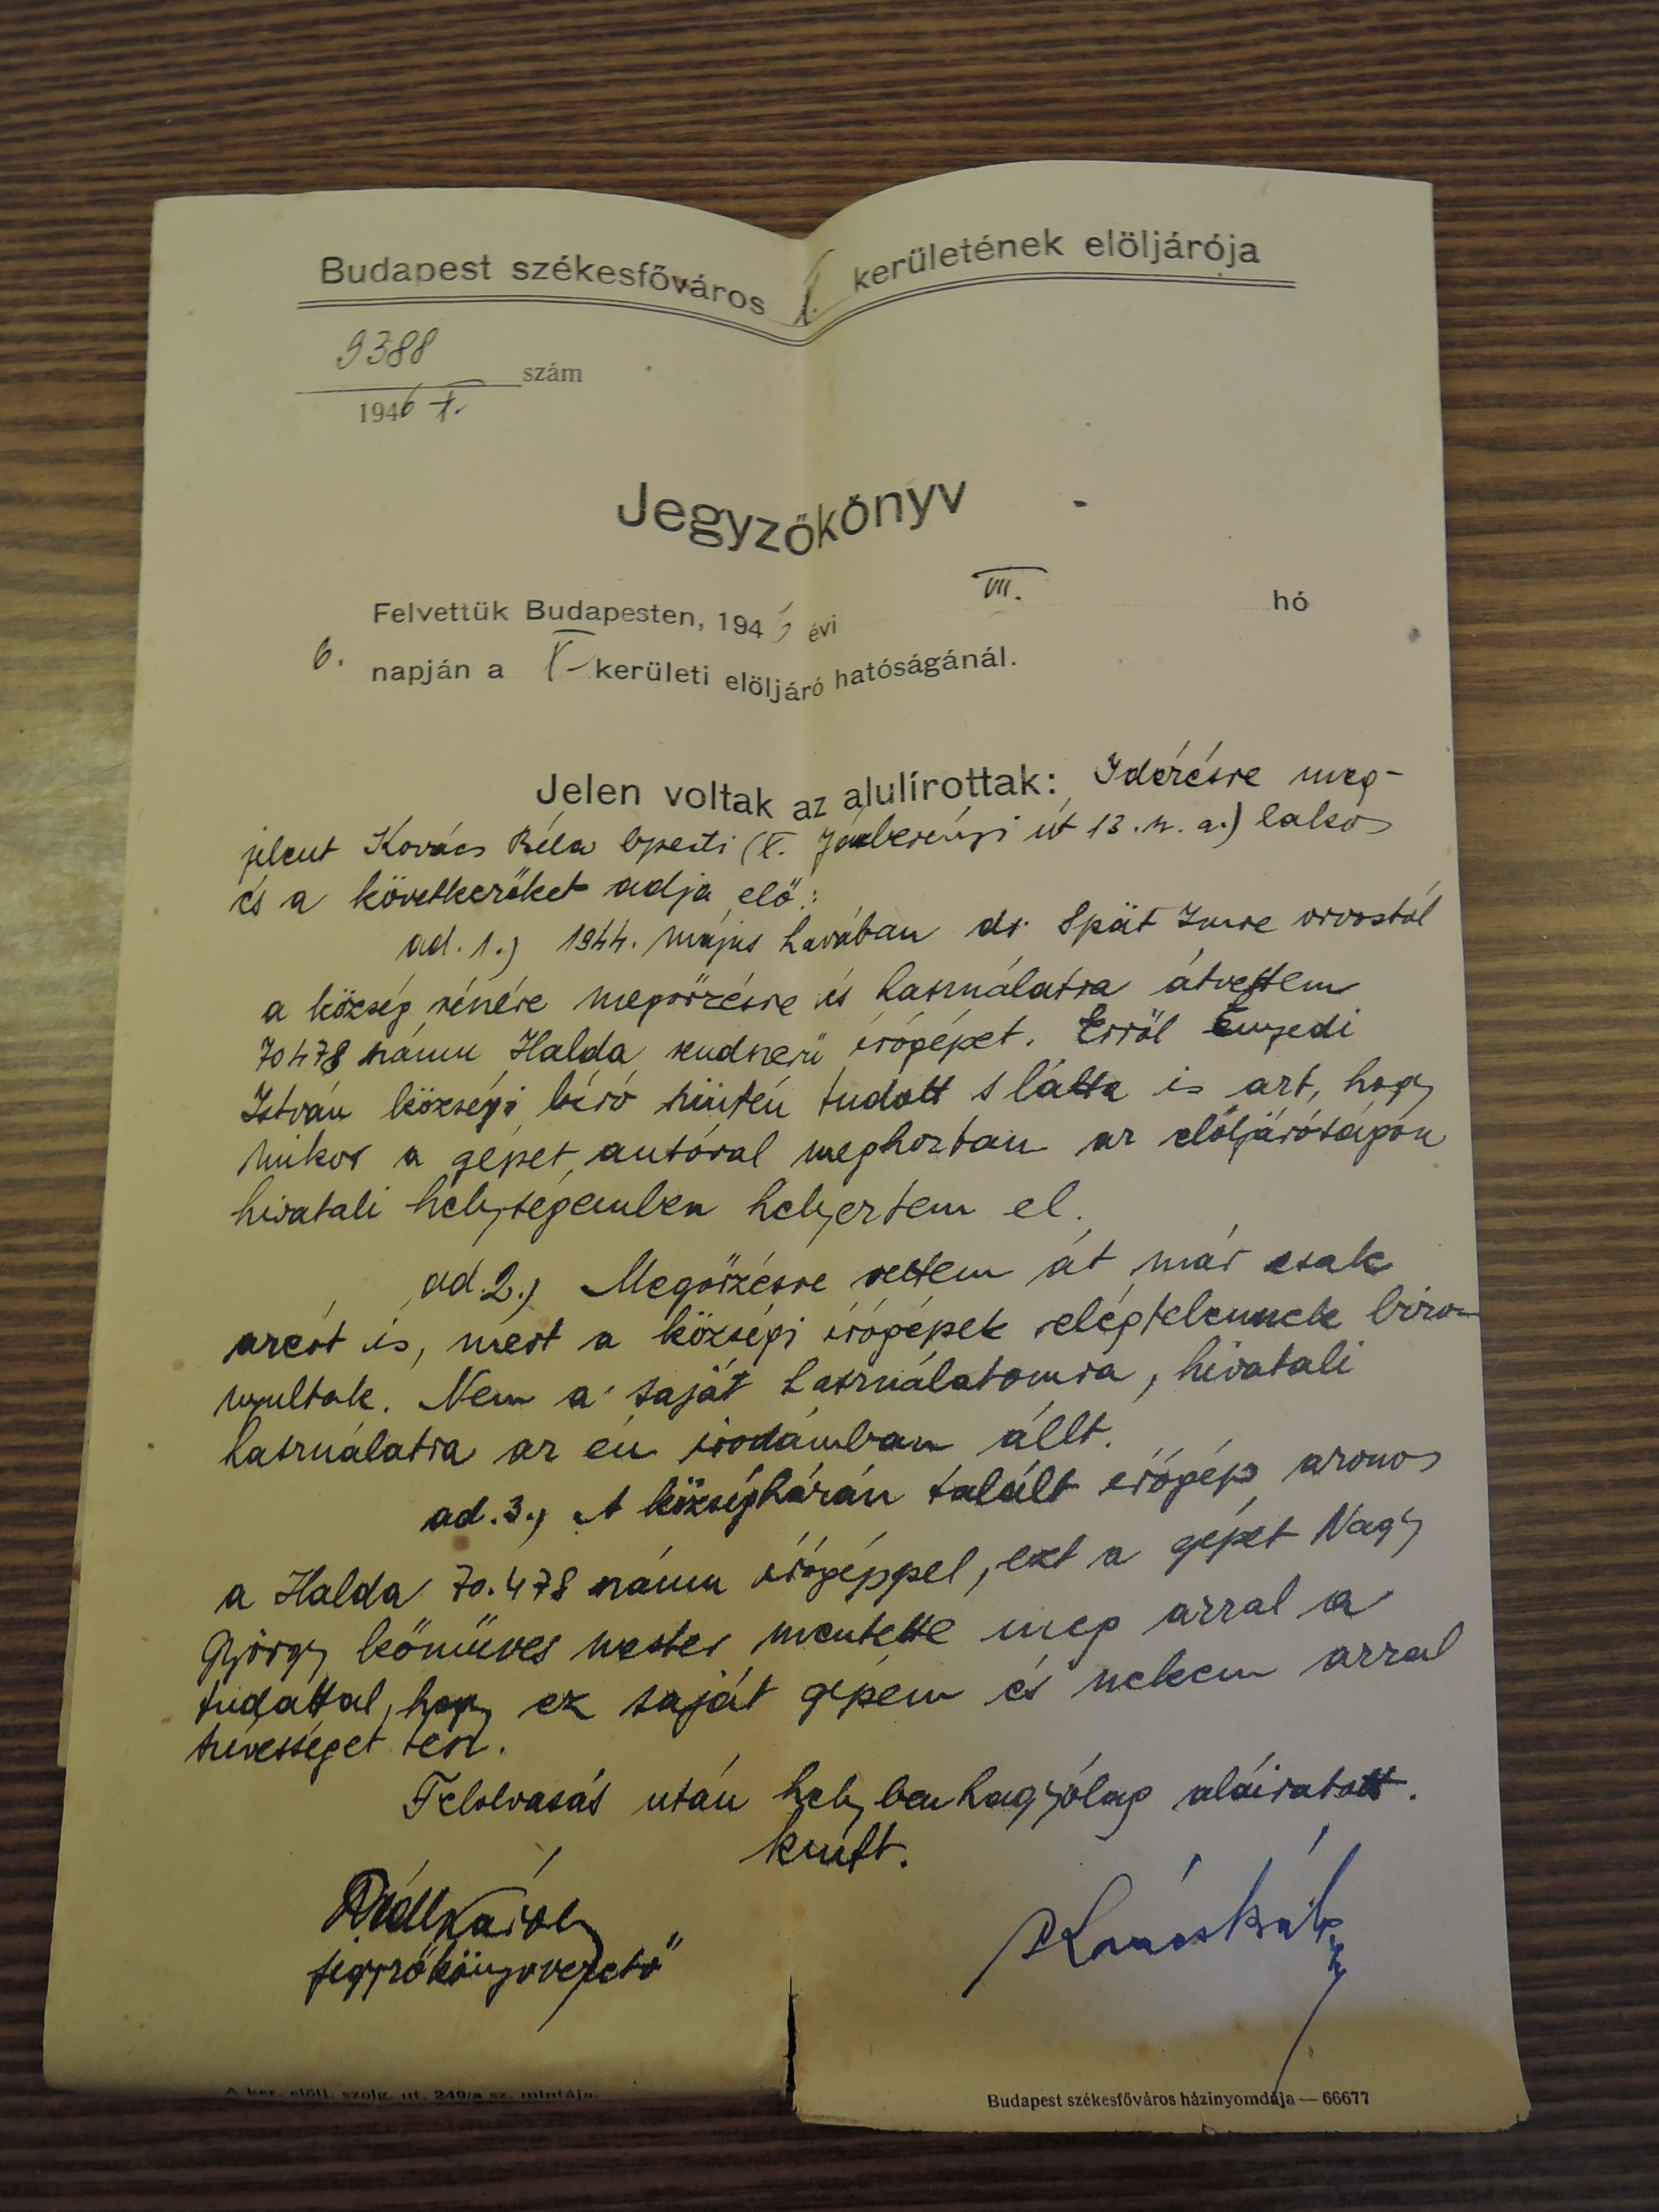 Budapest székesfőváros X. kerületének elöljárója
9388 szám
1946 X.
Jegyzőkönyv
Felvettük Budapesten, 1946 évi VII. hó
6. napján a X. kerületi elöljáró hatóságánál.
Jelen voltak az alulírottak: Idézésre meg-
jelent Kovács Béla bpesti (X. Jászberényi út 13. sz. a.) lakos
és a következőket adja elő:
ad. 1.) 1944. május havában dr. Spät Imre orvostól
a község részére megőrzésre és használatra átvettem
70478 számu Halda rendszerű írógépet. Erről Enyedi
István községi bíró szintén tudott s látta is azt, hogy
mikor a gépet autóval meghoztam az elöljáróságon
hivatali helységemben helyeztem el.
ad. 2.) Megőrzésre vettem át már csak
azért is, mert a községi írógépek elégtelennek bizo-
nyultak. Nem a saját használatomra, hivatali
használatra az én irodámban állt.
ad. 3.) A községházán talált írógép azonos
a Halda 70.478 számu írógéppel, ezt a gépet Nagy
György kőműves mester mentette meg azzal a
tudattal, hogy ez saját gépem és nekem azzal
szívességet tesz.
Felolvasás után helybenhagyólag aláiratott.
kmft.
Károly
jegyzőkönyvvezető
Kovács Béla
A ker. elölj. szolg. ut. 249/a sz. mintája.
Budapest székesfőváros házinyomdája — 66677